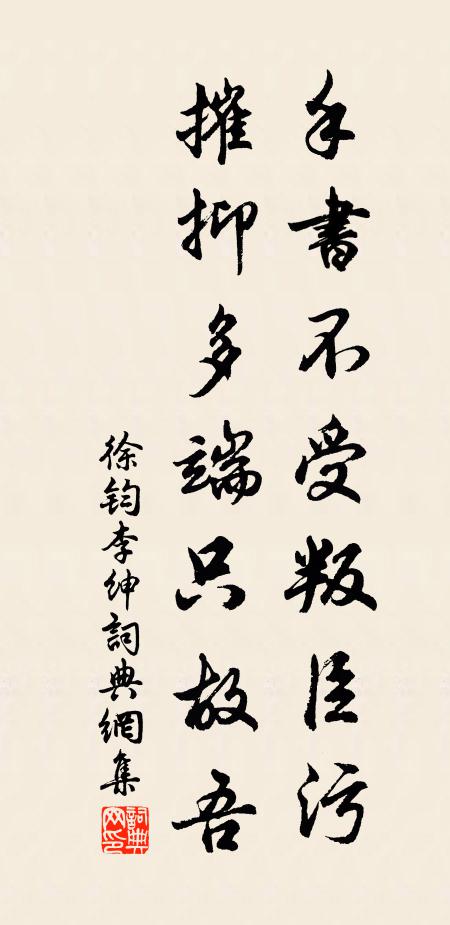 手書不受叛臣污
摧抑多端只故吾
徐鈞李紳詞典網集
詞典網印